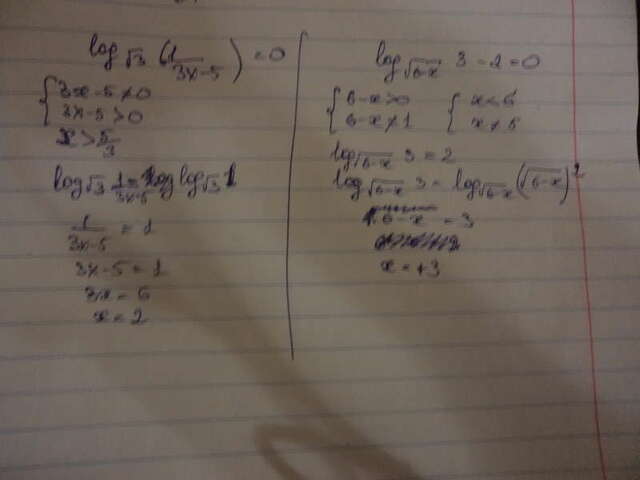 log√3 (1/(3x-5)) = 0
{3x-5≠0
3x-5>0
x>5/3
log√3 1/(3x-5) = log√3 1
1/(3x-5) = 1
3x-5=1
3x=6
x=2
log√(6-x) 3-2=0
{6-x>0 {x<6
6-x≠1 x≠5
log√(6-x) 3=2
log√(6-x) 3=log√(6-x) (√(6-x))²
6-x=3
x=+3